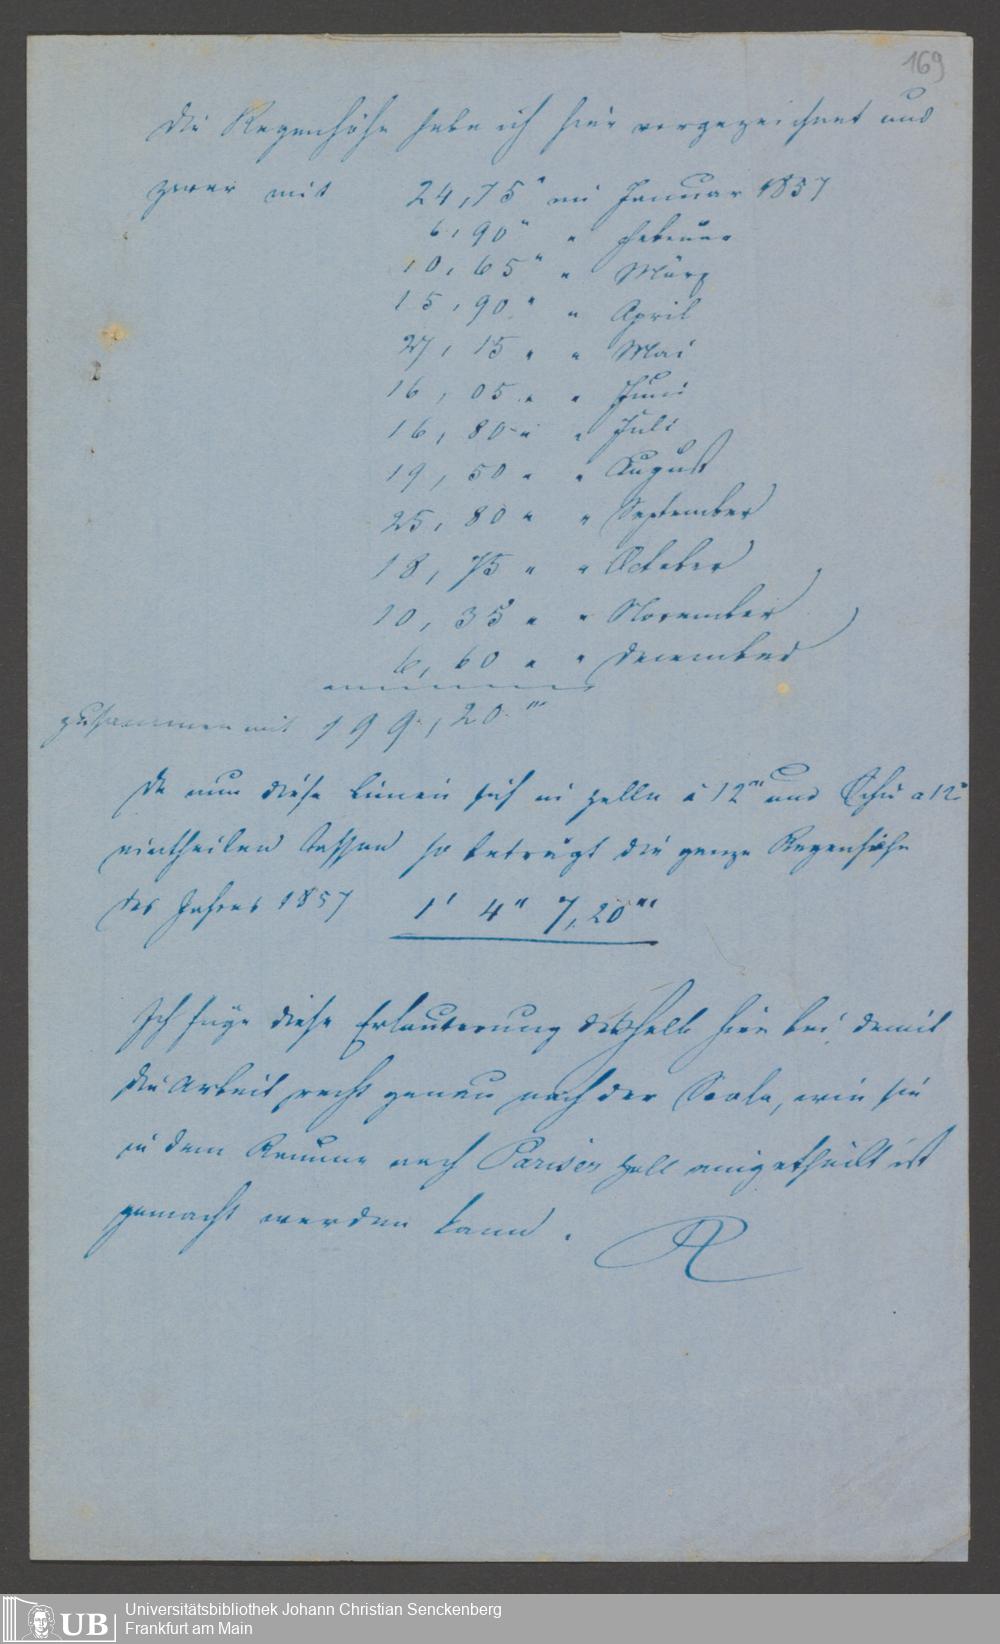 169
Die Regenhöhe habe ich hier vorgezeichnet und
zwar mit 24,75''' im Januar 1857
6,90''' " Februar
10,65''' " März
15,90 " " April
27,15 " " Mai
16,05 " " Juni
16,80 " " Juli
19,50 " " August
25,80 " " September
18,75 " " October
10,35 " " November
6,60 " " December
zusammen mit 199,20'''
Da nun diese Linien sich in Zolle à 12''' und Schu a 12''
eintheilen lassen so beträgt die ganze Regenhöhe
des Jahres 1857 1' 4'' 7,20'''
Ich füge diese Erlauterung deshalb hier bei, damit
die Arbeit recht genau nach der Scala, wie sie
in dem Raume nach Pariser Zoll eingetheilt ist
gemacht werden kann.
UB Universitätsbibliothek Johann Christian Senckenberg
Frankfurt am Main